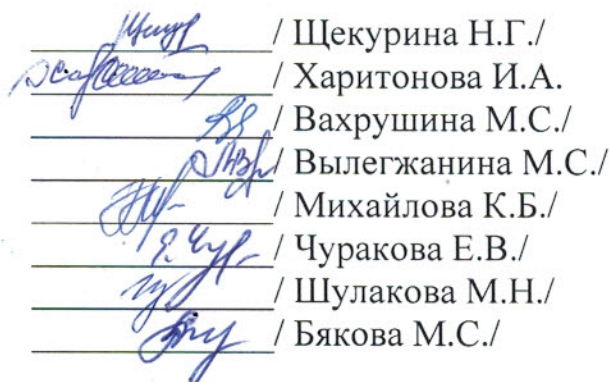 / Щекурина Н.Г./
/ Харитонова И.А.
/ Вахрушина М.С./
/ Вылегжанина М.С./
/ Михайлова К.Б./
/ Чуракова Е.В./
/ Шулакова М.Н./
/ Бякова М.С./